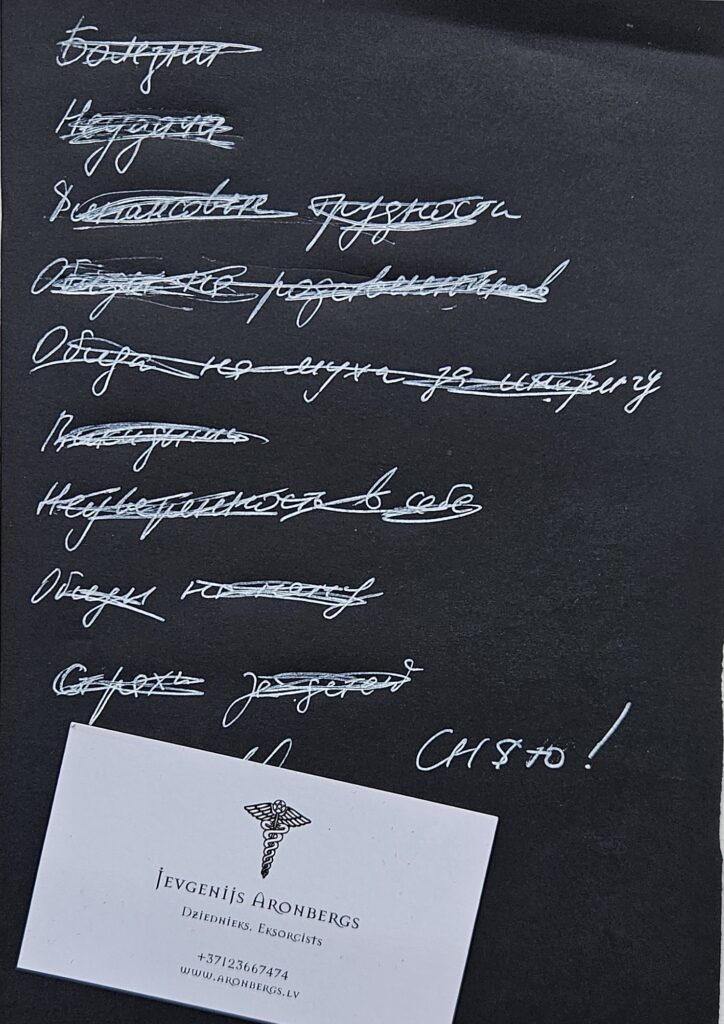 Болезни
Неудачи
Финансовые трудности
Обиды на родственников
Обида на мужа за интригу
Неуверенность в себе
Обиды на маму
Страхи за детей
СНЯТО!
JEVGENIJS ARONBERGS
DZIEDNIEKS, EKSORCISTS
+37123667474
WWW.ARONBERGS.LV